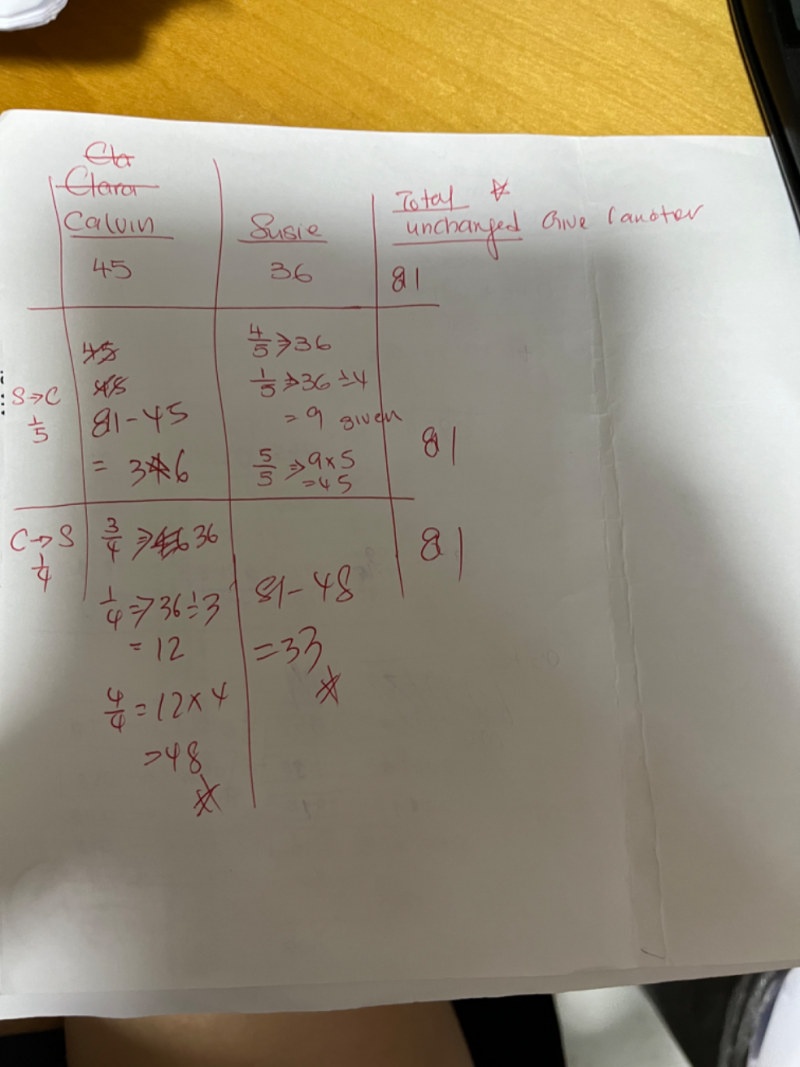 Cla
Clara
Calvin
Susie
Total ☆
unchanged Give 1 another
45
36
81
S→C
1/5
45
45
81-45
= 36
4/5 ⇒ 36
1/5 ⇒ 36 ÷ 4
= 9 given
5/5 ⇒ 9×5
= 45
81
C→S
1/4
3/4 ⇒ 36
1/4 ⇒ 36÷3
= 12
4/4 = 12×4
⇒ 48
☆
81-48
= 33
☆
81